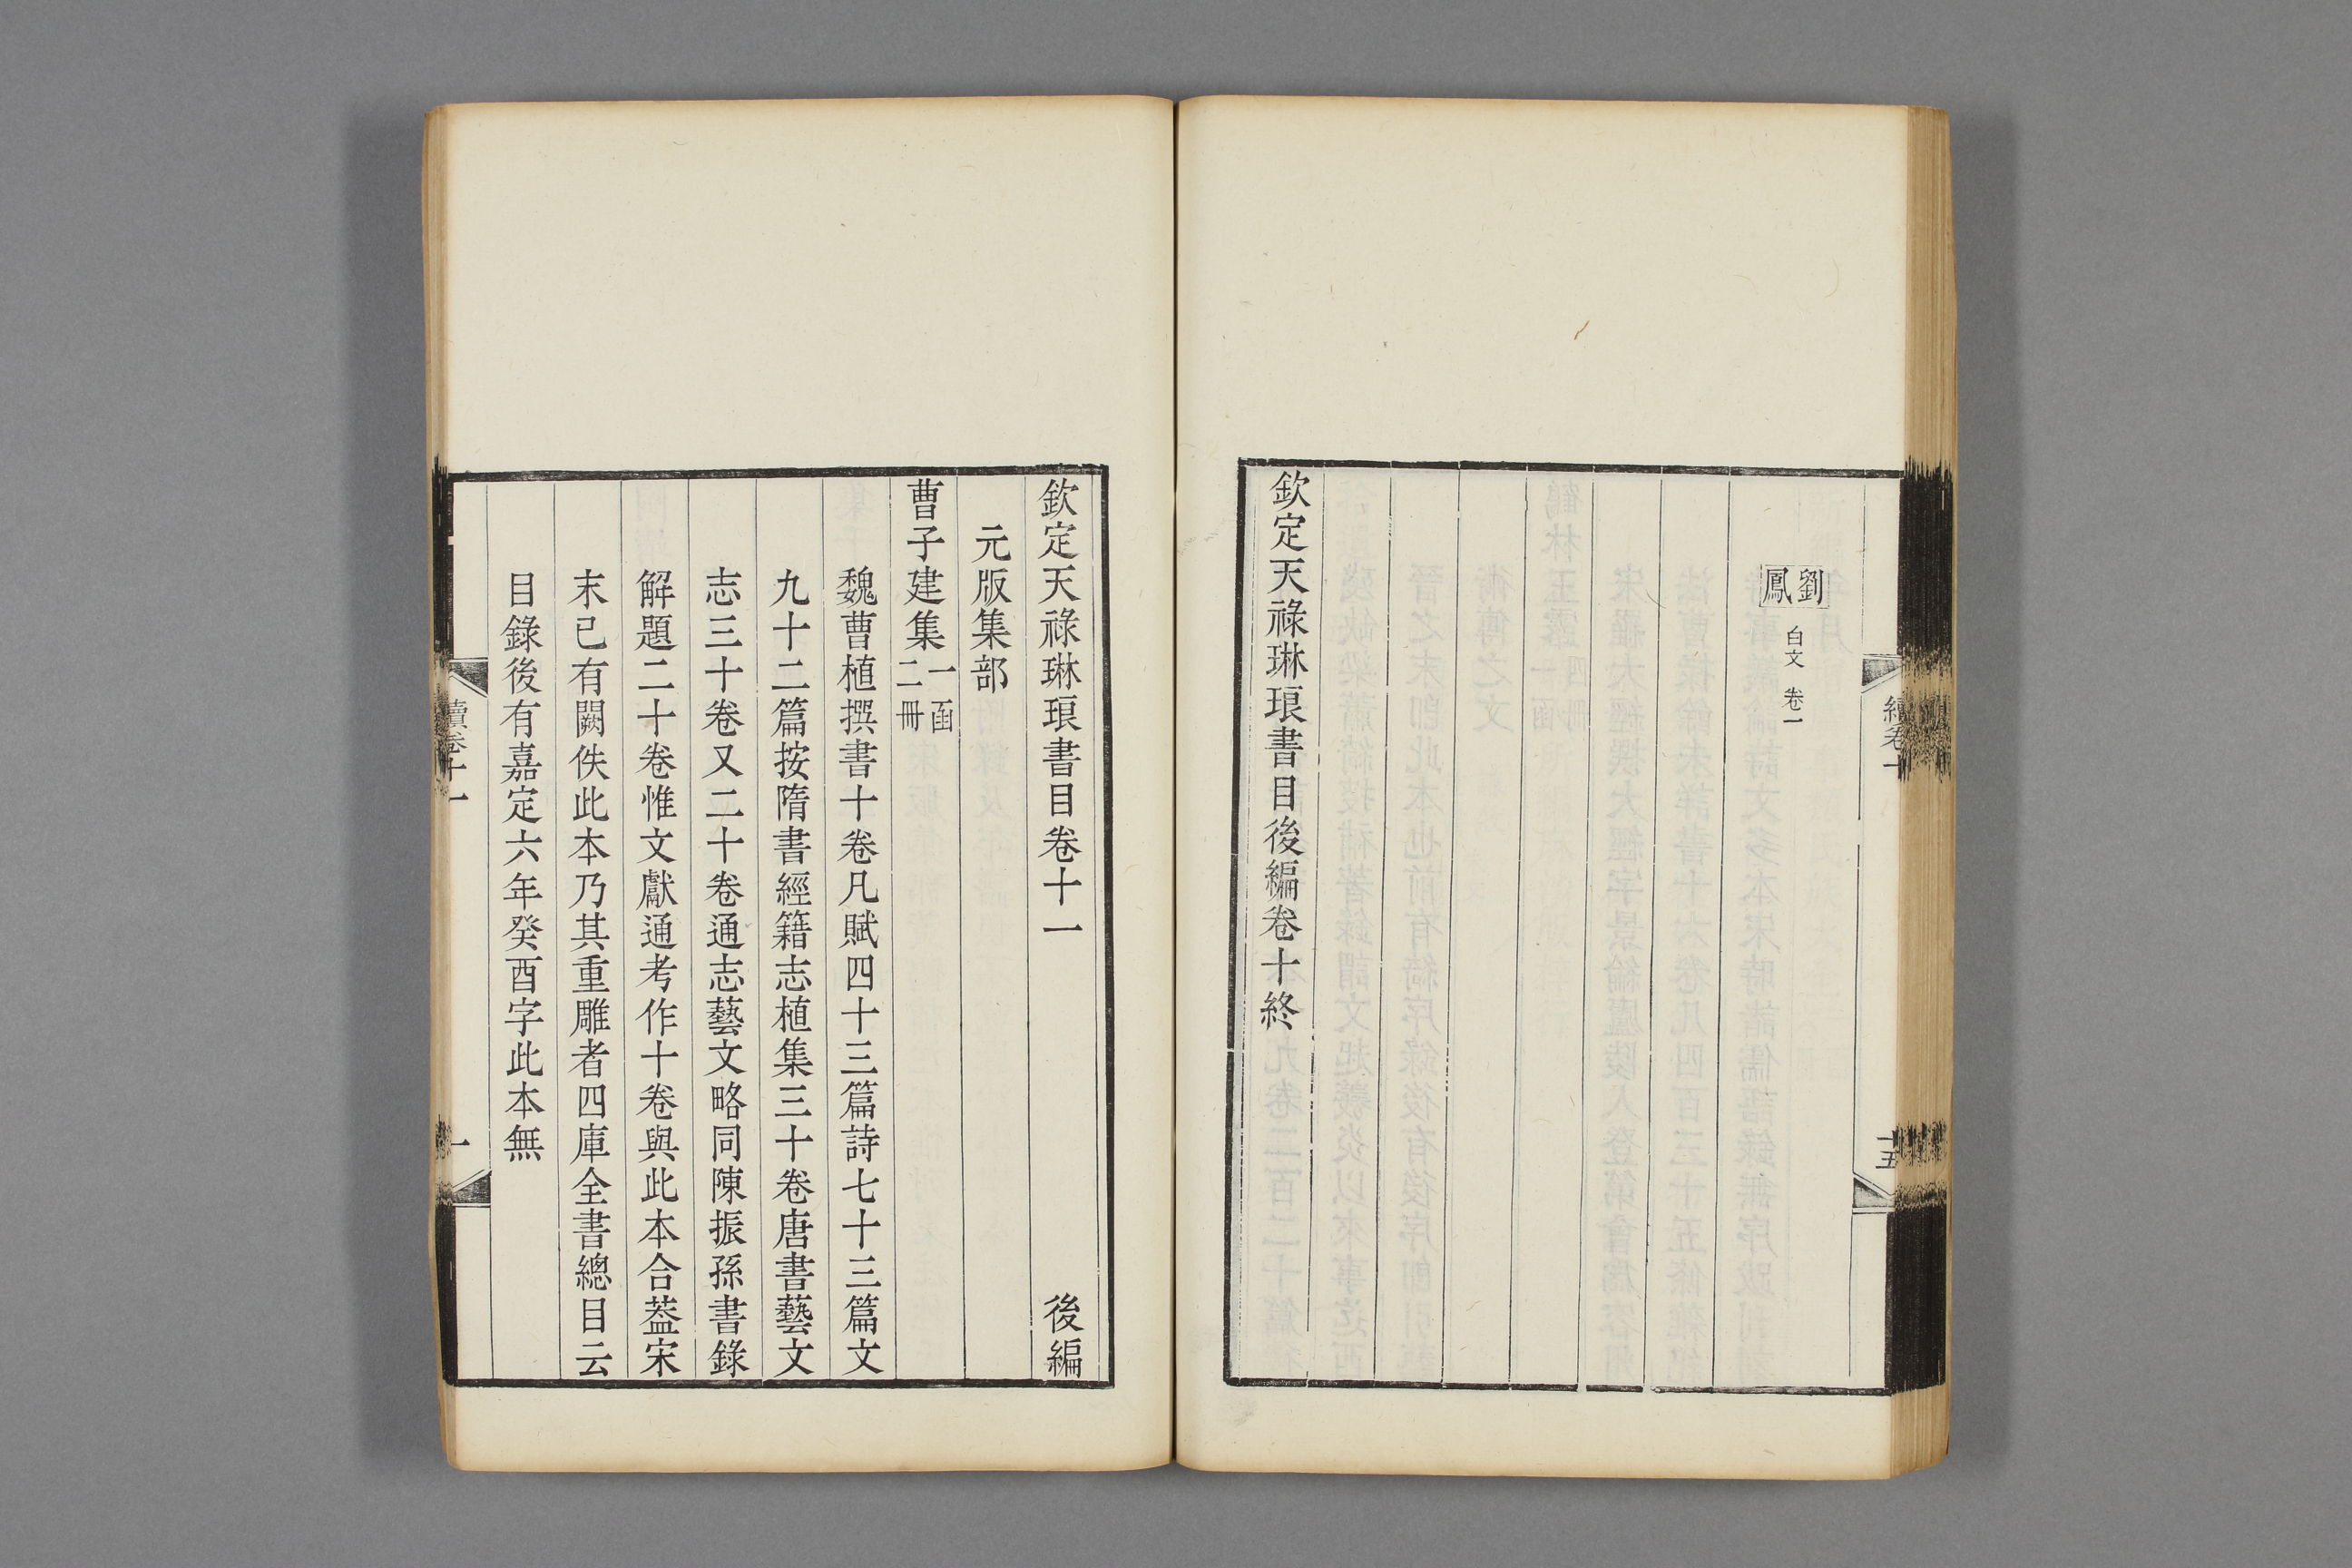 劉鳳
白文 卷一
欽定天祿琳琅書目後編卷十終
續卷十
十五
欽定天祿琳琅書目卷十一 後編
元版集部
曹子建集 一函二冊
魏曹植撰書十卷凡賦四十三篇詩七十三篇文
九十二篇按隋書經籍志植集三十卷唐書藝文
志三十卷又二十卷通志藝文略同陳振孫書錄
解題二十卷惟文獻通考作十卷與此本合葢宋
末已有闕佚此本乃其重雕者四庫全書總目云
目錄後有嘉定六年癸酉字此本無
續卷十一
一